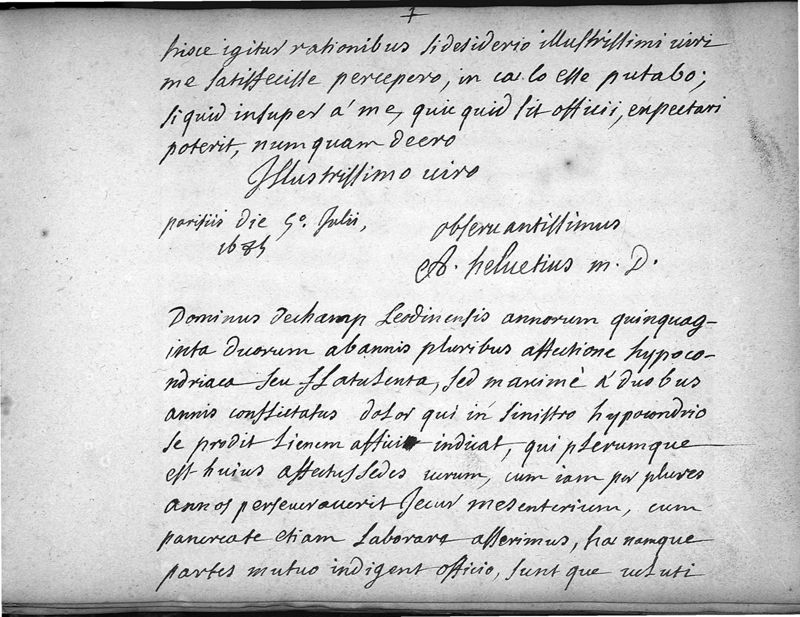 hisce igitur rationibus si desiderio illustrissimi viri
me satisfecisse percepero, in cœlo esse putabo;
si quid insuper à me, quic quid sit officii, expectari
poterit, numquam deero
Illustrissimo viro
parisiis die 5°. Julii,
observantissimus
A. helvetius m. D.
Dominus dechamp Leodinensis annorum quinquag-
inta duorum ab annis pluribus affectione hypoco-
ndriaca seu flatulenta, sed maximè à duobus
annis conflictatus dolor qui in sinistro hypocondrio
se prodit Lienem indicat, qui plerumque
est huius affectus sedes verum, cum iam per plures
annos perseveraverit Jecur mesenterium, cum
pancreate etiam Laborare asserimus, hæ namque
partes mutuo indigent officio, sunt que veluti